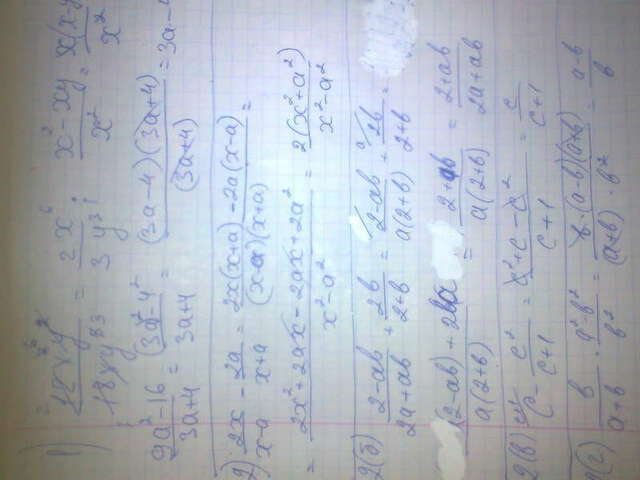 1) 12x⁶y / 18xy³ = 2x⁶ / 3y³ ; x² - xy / x² = x(x-y / x²
9a² - 16 / 3a+4 = (3a)² - 4² / 3a+4 = (3a-4)(3a+4) / (3a+4) = 3a-4
2) 2x / x-a - 2a / x+a = 2x(x+a) - 2a(x-a) / (x-a)(x+a) =
= 2x² + 2ax - 2ax + 2a² / x² - a² = 2(x² + a²) / x² - a²
2(б) 2-ab / 2a+ab + 2b / 2+b = 2-ab / a(2+b) + 2b / 2+b =
(2-ab) + 2ba / a(2+b) = 2+ab / a(2+b) = 2+ab / 2a+ab
2(в) c - c² / c+1 = c² + c - c² / c+1 = c / c+1
2(г) b / a+b · a² - b² / b² = b·(a-b)(a+b) / (a+b)·b² = a-b / b